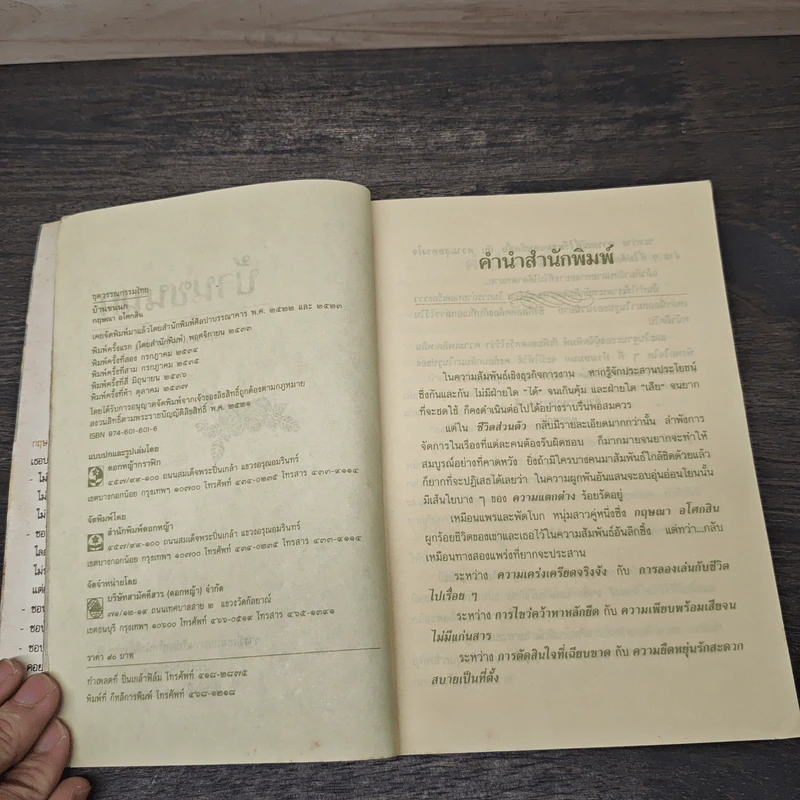 ชุดวรรณกรรมไทย
บ้านขนนก
กฤษณา อโศกสิน
เคยจัดพิมพ์มาแล้วโดยสำนักพิมพ์ศิลปาบรรณาคาร พ.ศ. ๒๕๒๒ และ ๒๕๒๓
พิมพ์ครั้งแรก (โดยสำนักพิมพ์) พฤศจิกายน ๒๕๓๓
พิมพ์ครั้งที่สอง กรกฎาคม ๒๕๓๔
พิมพ์ครั้งที่สาม กรกฎาคม ๒๕๓๕
พิมพ์ครั้งที่สี่ มิถุนายน ๒๕๓๖
พิมพ์ครั้งที่ห้า ตุลาคม ๒๕๓๗
โดยได้รับการอนุญาตจัดพิมพ์จากเจ้าของลิขสิทธิ์ถูกต้องตามกฎหมาย
สงวนลิขสิทธิ์ตามพระราชบัญญัติลิขสิทธิ์ พ.ศ. ๒๕๒๑
ISBN 974-601-601-6
แบบปกและรูปเล่มโดย
ดอกหญ้ากราฟิก
๔๕๗/๔๔-๑๐๐ ถนนสมเด็จพระปิ่นเกล้า แขวงอรุณอมรินทร์
เขตบางกอกน้อย กรุงเทพฯ ๑๐๗๐๐ โทรศัพท์ ๔๓๔-๐๒๓๕ โทรสาร ๔๓๓-๙๑๑๔
จัดพิมพ์โดย
สำนักพิมพ์ดอกหญ้า
๔๕๗/๔๔-๑๐๐ ถนนสมเด็จพระปิ่นเกล้า แขวงอรุณอมรินทร์
เขตบางกอกน้อย กรุงเทพฯ ๑๐๗๐๐ โทรศัพท์ ๔๓๔-๐๒๓๕ โทรสาร ๔๓๓-๙๑๑๔
จัดจำหน่ายโดย
บริษัทสามัคคีสาร (ดอกหญ้า) จำกัด
๗๑/๑๒-๑๙ ถนนเทศบาลสาย ๒ แขวงวัดกัลยาณ์
เขตธนบุรี กรุงเทพฯ ๑๐๖๐๐ โทรศัพท์ ๔๖๖-๐๕๑๙ โทรสาร ๔๖๕-๑๓๙๑
ราคา ๙๐ บาท
ทำเพลตที่ ปิ่นเกล้าฟิล์ม โทรศัพท์ ๔๑๘-๒๘๗๕
พิมพ์ที่ ภิทลีการพิมพ์ โทรศัพท์ ๔๖๘-๑๒๑๘
คำนำสำนักพิมพ์
ในความสัมพันธ์เชิงธุรกิจการงาน หากรู้จักประสานประโยชน์
ซึ่งกันและกัน ไม่มีฝ่ายใด "ได้" จนเกินคุ้ม และฝ่ายใด "เสีย" จนยาก
ที่จะชดใช้ ก็คงดำเนินต่อไปได้อย่างราบรื่นพอสมควร
แต่ใน ชีวิตส่วนตัว กลับมีรายละเอียดมากกว่านั้น ลำพังการ
จัดการในเรื่องที่แต่ละคนต้องรับผิดชอบ ก็มากมายจนยากจะทำให้
สมบูรณ์อย่างที่คาดหวัง ยิ่งถ้ามีใครบางคนมาสัมพันธ์ใกล้ชิดด้วยแล้ว
ก็ยากที่จะปฏิเสธได้เลยว่า ในความผูกพันอันแสนจะอบอุ่นอ่อนโยนนั้น
มีเส้นใยบาง ๆ ของ ความแตกต่าง ร้อยรัดอยู่
เหมือนแพรและพัดโบก หนุ่มสาวคู่หนึ่งซึ่ง กฤษณา อโศกสิน
ผูกร้อยชีวิตของเขาและเธอไว้ในความสัมพันธ์อันลึกซึ้ง แต่ทว่า...กลับ
เหมือนทางสองแพร่งที่ยากจะประสาน
ระหว่าง ความเคร่งเครียดจริงจัง กับ การลองเล่นกับชีวิต
ไปเรื่อย ๆ
ระหว่าง การไขว่คว้าหาหลักยึด กับ ความเพียบพร้อมเสียจน
ไม่มีแก่นสาร
ระหว่าง การตัดสินใจที่เฉียบขาด กับ ความยืดหยุ่นรักสะดวก
สบายเป็นที่ตั้ง